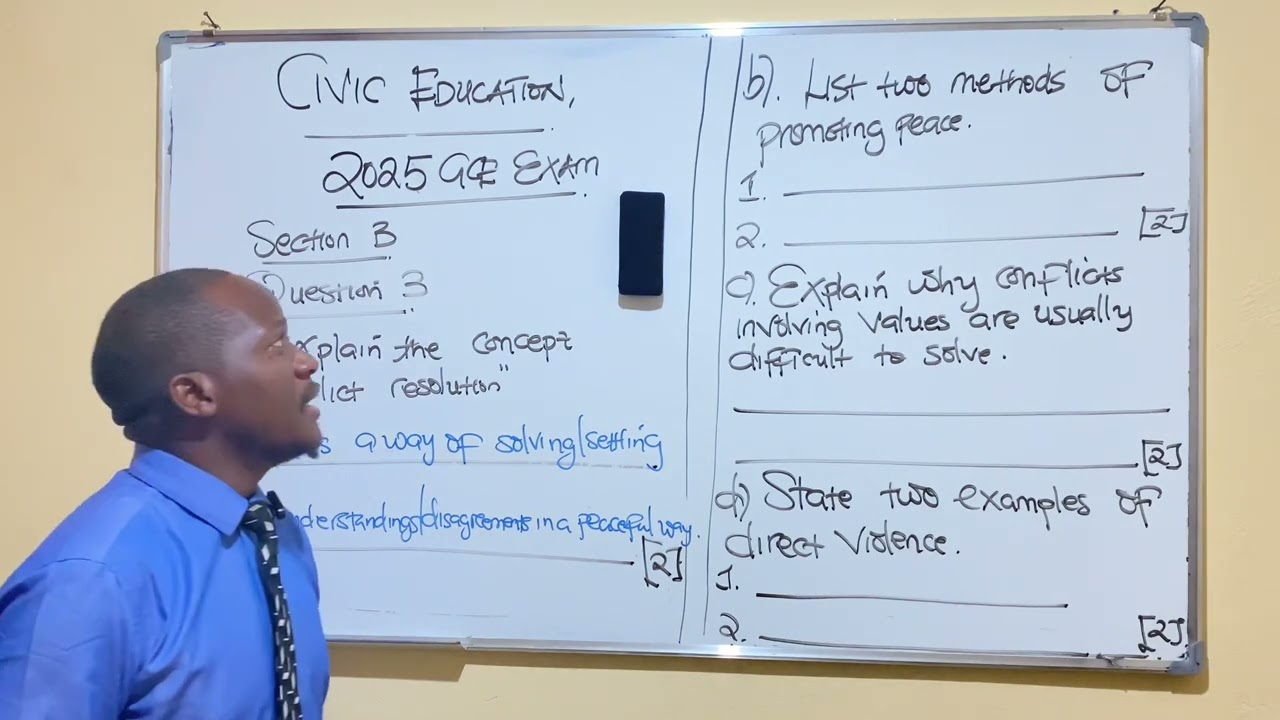 CIVIC EDUCATION,
2025 GCE EXAM
Section B
Question 3
xplain the concept
lict resolution"
s a way of solving/settling
nderstandings/disagreements in a peaceful way.
[2]
b). List two methods of
promoting peace.
1.
2. [2]
c). Explain why conflicts
involving values are usually
difficult to solve.
[2]
d) State two examples of
direct violence.
1.
2. [2]